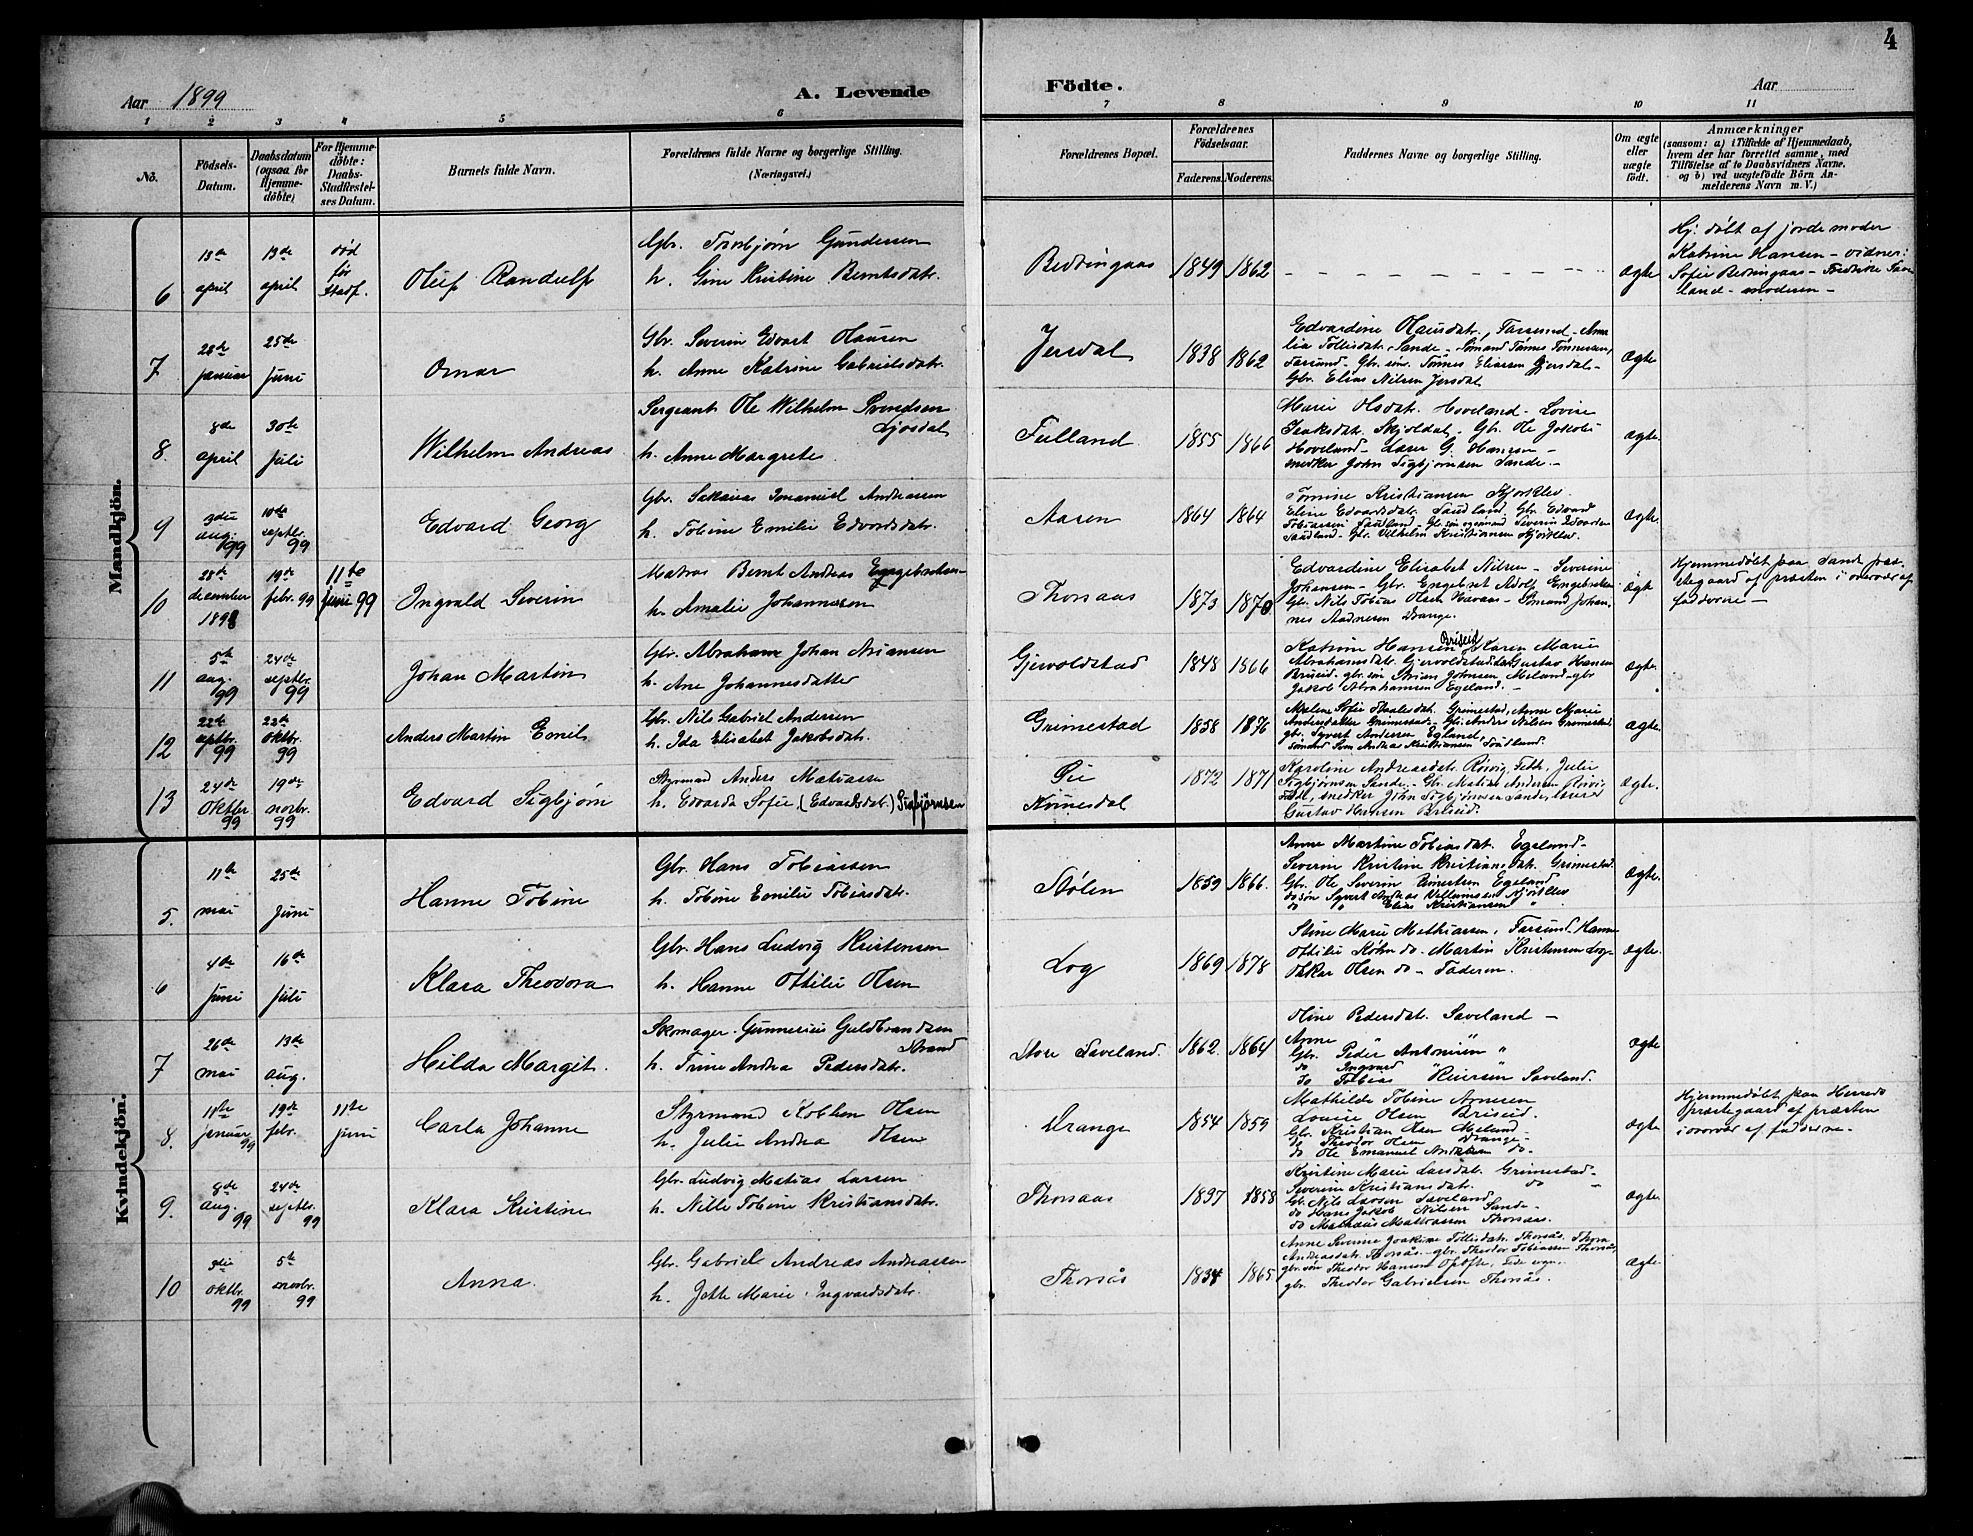 4
Aar 1899
A. Levende
Födte.
Aar
1 2 3 4 5 6 7 8 9 10 11
No.
Födsels-
Datum.
Daabsdatum
(ogsaa for
Hjemme-
döbte)
For Hjemme-
döbte:
Daabs-
Stadfæstel-
ses Datum.
Barnets fulde Navn.
Forældrenes fulde Navne og borgerlige Stilling.
(Næringsvei.)
Forældrenes Bopæl.
Forældrenes
Födselsaar.
Faderens. Moderens.
Faddernes Navne og borgerlige Stilling.
Om ægte
eller
uægte
födt.
Anmærkninger
(saasom: a) i Tilfælde af Hjemmedaab,
hvem der har forrettet samme, med
Tilföielse af to Daabsvidners Navne.
og b) ved uægtefödte Börn An-
melderens Navn m. V.)
Mandkjön.
6
13de
april
13de
april
død
før
stadf.
Oluf Randulf
Gbr. Torbjørn Gundersen
h. Gine Kristine Berntsdatr.
Bedringaas
1849 1862
ægte
Hj. døbt af jordemoder
Katrine Hansen - vidner:
Sofie Bedringaas - Fredrike Save
land - moderen -
7
28de
januar
25de
juni
Omar
Gbr. Severin Edvart Hansen
h. Anne Katrine Gabrielsdatr.
Jersdal
1838 1862
Edvardine Olausdatr. Farsund - Ama
lia Tollisdatr. Sande - Sømand Tønnes Tønnesen,
Farsund. Gbr. søn. Tønnes Eliassen Gjersdal -
Gbr. Elias Nilsen Jersdal
ægte
8.
8de
april
30te
juli
Wilhelm Andreas
Sergeant Ole Wilhelm Svendsen
Ljosdal
h. Anne Margrete
Fulland
1855 1866
Marie Olsdatr. Hoveland - Lovise
Isaksdatr. Skjoldal - Gbr. Ole Jakobs
Hoveland - Lærer G. Hansen -
snedker John Sigbjørnsen Sande. -
ægte
9
3die
aug.
99
10de
septbr.
99
Edvard Georg
Gbr. Sakarias Emanuel Andreassen
h. Tobine Emilie Edvardsdatr.
Aasen
1864 1864
Tomine Kristiansen Kjørkleb.
Eline Edvardsdatr. Saudland. Gbr. Edvard
Tobiassen Saudland - Gbr søn og sømand Severin Edvardsen
Saudland - Gbr. Vilhelm Kristiansen Kjørkleb
ægte.
10
28de
december
1898
19de
febr. 99
11te
juni 99
Ingvald Severin
Matros Bernt Andreas Engebretsen
h. Amalie Johannessen
Thorsaas
1873 1870
Edvardine Elisabet Nilsen - Severine
Johansen - Gbr. Engebret Adolf Engebretsen
Gbr. Nils Tobias Olsen Havaas - Sømand Johan,
nes Aadnesen Drange.
ægte
Hjemmedøbt paa Lands præ-
stegaard af præsten i overvær af
fadderne -
11
5te
aug.
99
24de
septbr.
99
Johan Martin
Gbr. Abraham Johan Ariansen
h. Ane Johannesdatter
Gjervoldstad
1848 1866
Katrine Hansen Briseid, Karen Marie
Abrahamsdatr. Gjervoldstad, Gustav Hansen
Briseid. gbr. søn Arian Johnsen Meland - gbr
Jakob Abrahamsen Egeland. -
ægte
12
22de
septbr.
99
22de
oktbr.
99
Anders Martin Emil
Gbr. Nils Gabriel Andersen
h. Ida Elisabet Jakobsdatr.
Grimestad
1858 1876
Malene Sofie Staalesdatr. Grimestad, Anne Marie
Andersdatter Grimestad - Gbr. Anders Nilsen Grimestad,
gbr. Syvert Andersen Egeland,
sømand Andreas Kristiansen Saudland.
ægte.
13
24de
oktbr.
99
19de
novbr.
99
Edvard Sigbjørn
Styrmand Anders Matiassen
h. Edvarda Sofie, (Edvardsdatr.) Sigbjørnsen
Kvinesdal
1872 1871
Karoline Andreasdatr. Røivig, Feth, Julie
Sigbjørnsen Sande. - Gbr. Matias Andersen Røivig
snedker John Sigbjørnsen Sande, lærer
Gustav Hansen Briseid.
ægte.
Kvindekjön.
5.
11te
mai
25de
juni
Hanne Tobine
Gbr. Hans Tobiassen
h. Tobine Emilie Tobiasdatr.
Stølen
1859 1866.
Anne Martine Tobiasdatr. Egeland -
Severine Kristine Kristiansdatr. Grimestad.
Gbr. Ole Severin Reinertsen Egeland
do søn Syvert Andreas Vilhelmsen Kjørkleb
do " Elias Kristiansen "
ægte.
6
4de
juni
16de
juli
Klara Theodora
Gbr. Hans Ludvig Kristensen
h. Hanne Ottilie Olsen
Log
1869 1878
Stine Marie Mathiassen, Farsund. Hanne
Ottilie Køhn do - Martin Kristensen Log -
Oskar Olsen do - Faderen.
ægte.
7
26de
mai
13de
aug.
Hilda Margit.
Skomager. Gunnerius Guldbrandsen
Strand
h. Trine Andrea Pedersdatr.
Store Saveland.
1862. 1864
Stine Pedersdatr. Saveland -
Anne " "
Gbr. Peder Antonisen "
do Ingvard " "
do Tobias Reiersen Saveland.
ægte
8.
11te
januar 99
19de
febr.
11te
juni
Carla Johanne
Styrmand Kolben Olsen
h. Julie Andrea Olsen
Drange
1854 1859
Mathilde Tobine Arnesen
Louise Olsen Briseid.
Gbr. Kristian Olsen Meland -
do Theodor Olsen Drange -
do Ole Emanuel Andersen do -
ægte
Hjemmedøbt paa Herreds
Præstegaard af præsten
i overvær af fadderne -
9.
8de
aug.
99
24de
septbr.
99
Klara Kristine
Gbr. Ludvig Matias Larsen
h. Nille Tobine Kristiansdatr.
Thorsaas
1897 1858
Kristine Marie Larsdatr. Grimestad -
Severine Kristiansdatr. do
Gbr. Nils Larsen Saveland
do Hans Jakob Nilsen Sande -
do Mathias Mathiassen Thorsaas.
ægte
10
3die
oktbr.
99
5te
novbr.
99
Anna.
Gbr. Gabriel Andreas Andreassen
h. Jette Marie Ingvardsdatr.
Thorsås
1834 1865
Anne Severine Joakime Tollisdatr. Thorsås, Thora
Andreasdatr. Thorsås - gbr. Theodor Tobiassen Thorsås,
gbr. søn Theodor Hansen Opofte,
gbr. Theodor Gabrielsen Thorsås.
ægte.